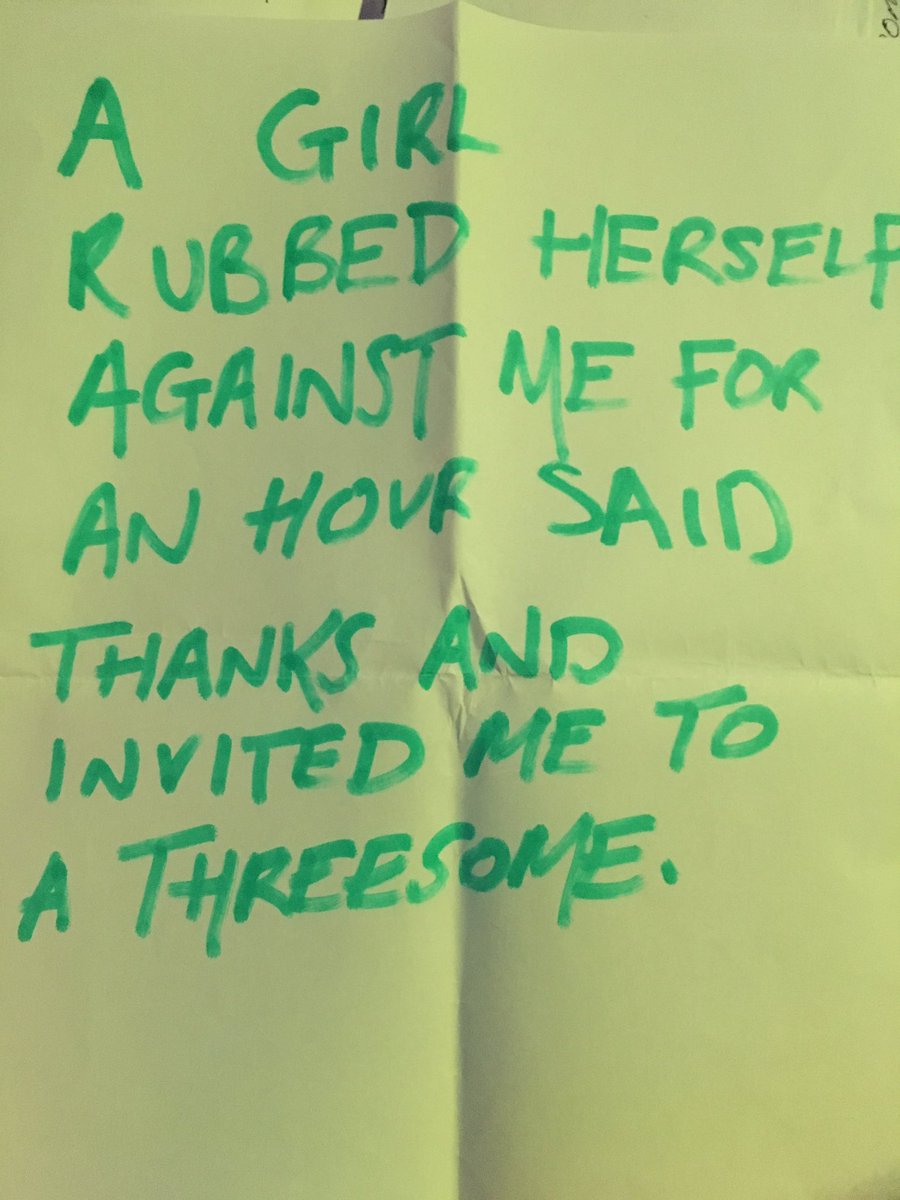 A GIRL
RUBBED HERSELF
AGAINST ME FOR
AN HOUR SAID
THANKS AND
INVITED ME TO
A THREESOME.